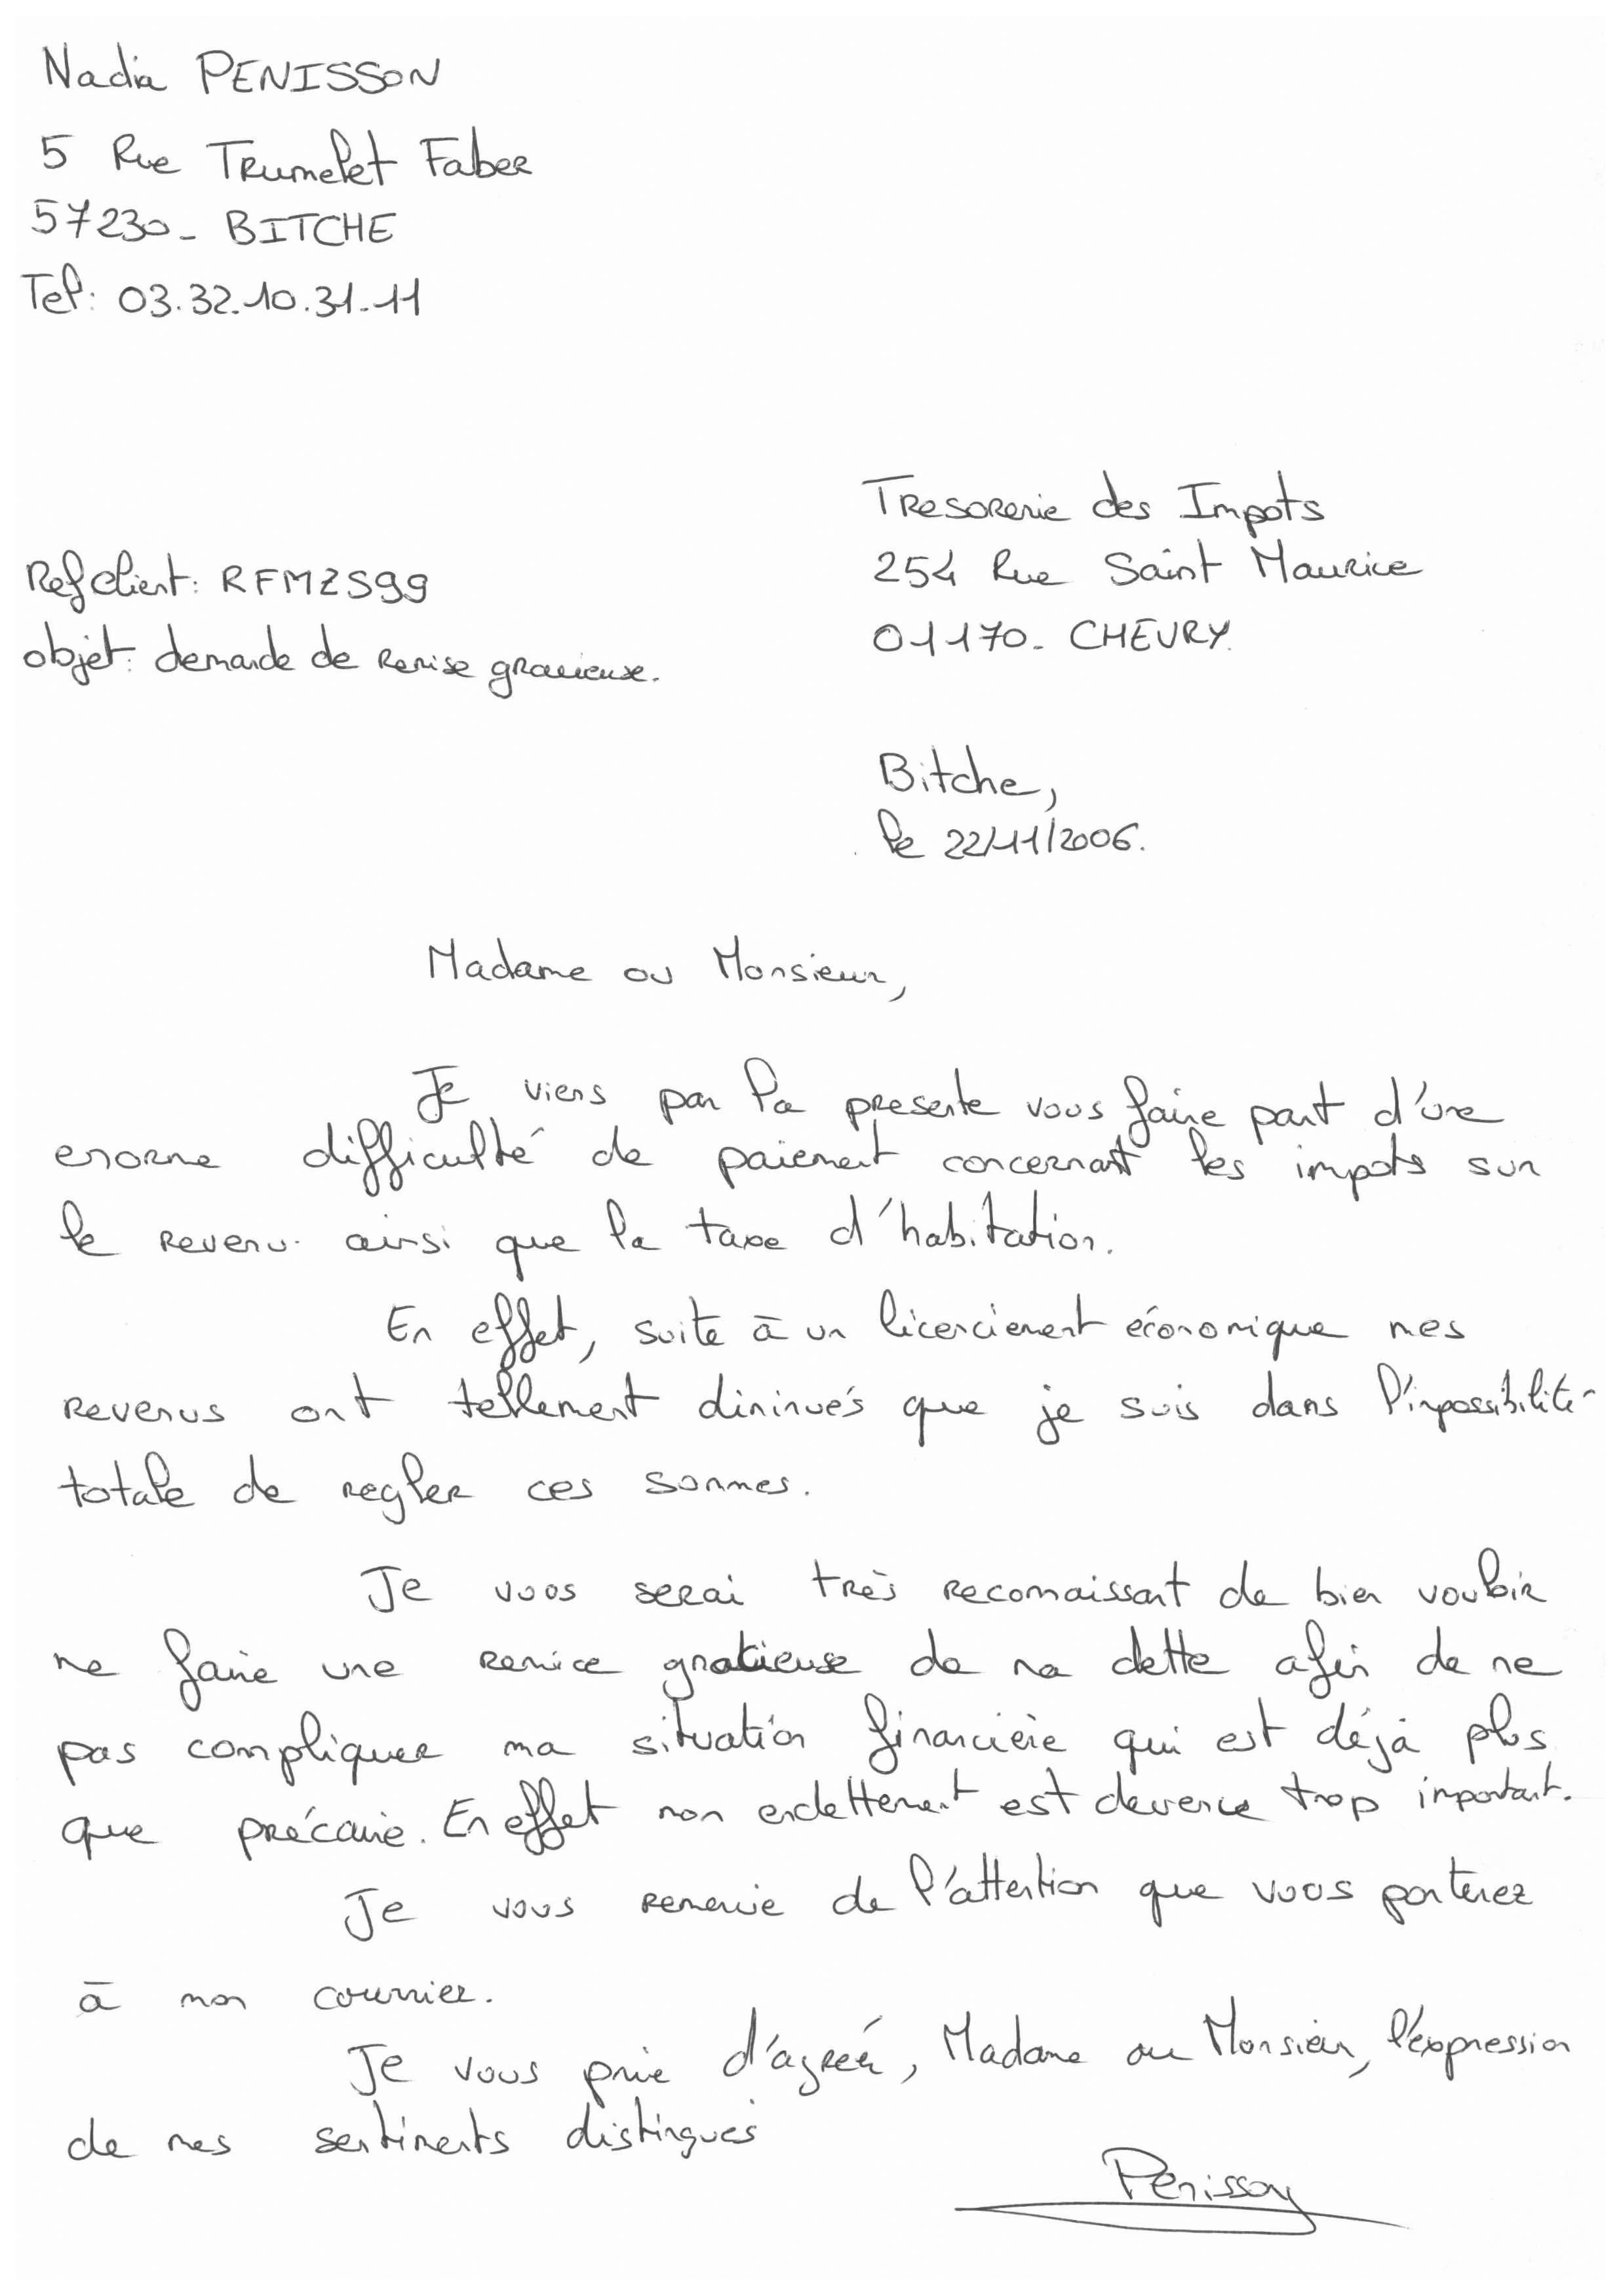 Nadia PENISSON
5 Rue Trumelet Faber
57230 - BITCHE
Tel: 03.32.10.31.11
Tresorerie des Impots
254 Rue Saint Maurice
01170 - CHEVRY.
Ref client: RFMZS99
objet: demande de remise gracieuse.
Bitche,
le 22/11/2006.
Madame ou Monsieur,
Je viens par la presente vous faire part d'une
enorme difficulté de paiement concernant les impots sur
le revenu ainsi que la taxe d'habitation.
En effet, suite à un licenciement économique mes
revenus ont tellement diminués que je suis dans l'impossibilité
totale de regler ces sommes.
Je vous serai très reconnaissant de bien vouloir
me faire une remice gracieuse de ma dette afin de ne
pas compliquer ma situation financière qui est déjà plus
que précaire. En effet mon endettement est devenu trop important.
Je vous remercie de l'attention que vous porterez
à mon courrier.
Je vous prie d'agréer, Madame ou Monsieur, l'expression
de mes sentiments distingués
Penisson